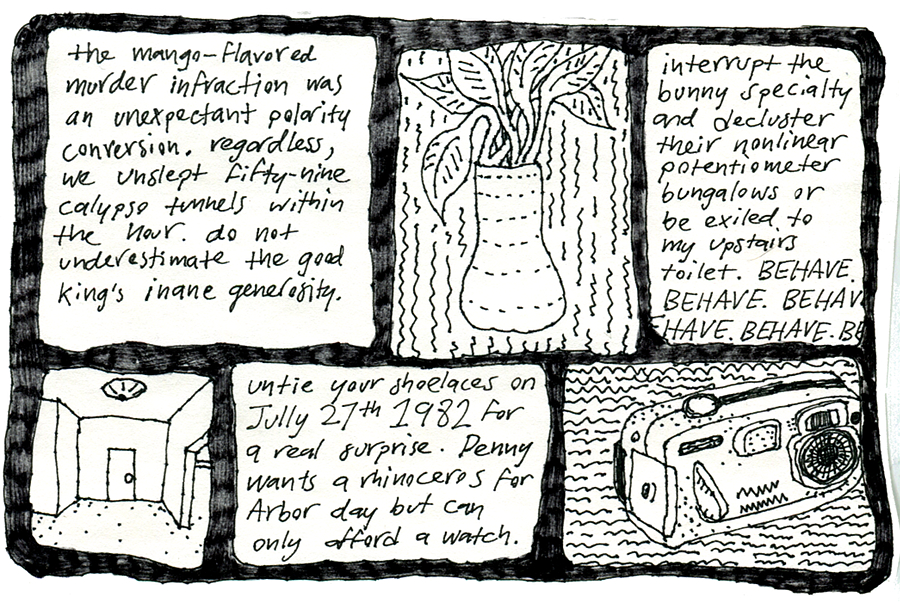 the mango-flavored
murder infraction was
an unexpectant polarity
conversion. regardless,
we unslept fifty-nine
calypso tunnels within
the hour. do not
underestimate the good
king's inane generosity.
interrupt the
bunny specialty
and decluster
their nonlinear
potentiometer
bungalows or
be exiled to
my upstairs
toilet. BEHAVE.
BEHAVE. BEHAV
EHAVE. BEHAVE. BE
untie your shoelaces on
Jully 27th 1982 for
a real surprise. Penny
wants a rhinoceros for
Arbor day but can
only afford a watch.